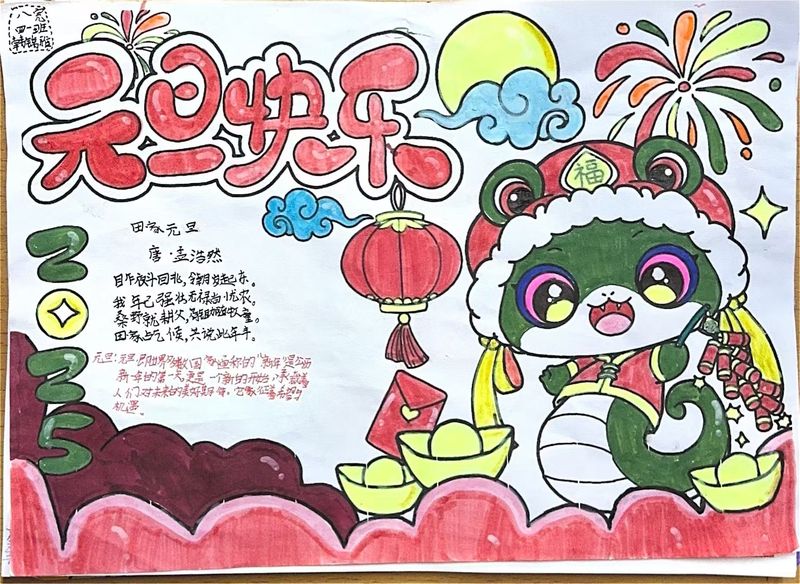 四一班
元旦快乐
福
2025
田家元旦
唐·孟浩然
昨夜斗回北，今朝岁起东。
我年已强壮，无禄尚忧农。
桑野就耕父，荷锄随牧童。
田家占气候，共说此年丰。
元旦：元旦，即世界多数国家通称的“新年”是公历
新一年的第一天，更是一个新的开始，承载着
人们对未来的美好期许，它象征着希望与
机遇。